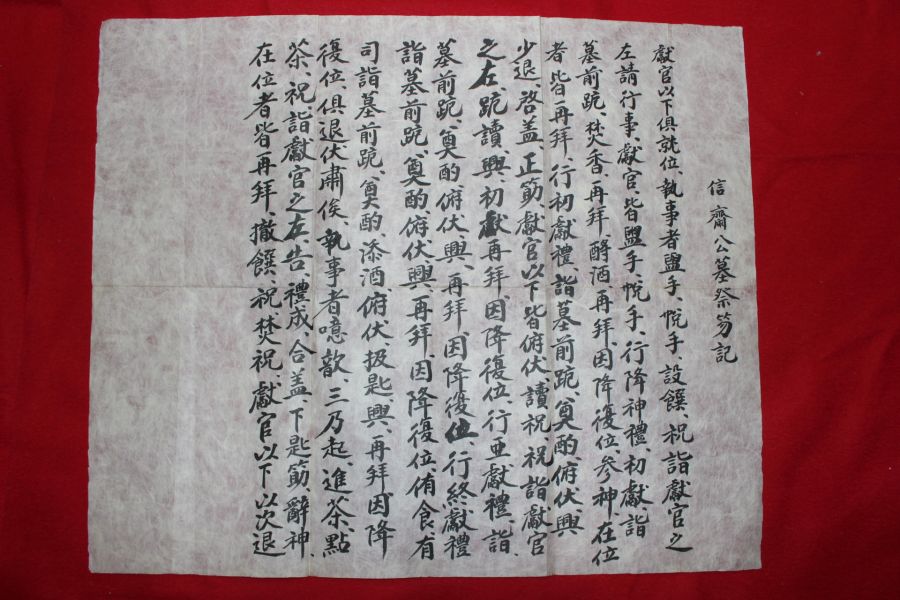 信齋公墓祭笏記
獻官以下俱就位、執事者盥手、帨手、設饌、祝詣獻官之
左請行事、獻官、皆盥手、帨手、行降神禮、初獻、詣
墓前跪、焚香、再拜、酹酒、再拜、因降復位、參神、在位
者皆再拜、行初獻禮、詣墓前跪、奠酌、俯伏、興
少退、啓盖、正筯、獻官以下皆俯伏、讀祝、祝詣獻官
之左、跪讀、興、初獻再拜、因降復位、行亞獻禮、詣
墓前跪、奠酌、俯伏、興、再拜、因降復位、行終獻禮
詣墓前跪、奠酌、俯伏興、再拜、因降復位、侑食、有
司詣墓前跪、奠酌、添酒、俯伏、扱匙、興、再拜、因降
復位、俱退伏肅俟、執事者噫歆、三乃起、進茶、點
茶、祝詣獻官之左、告、禮成、合盖、下匙筯、辭神、
在位者皆再拜、撤饌、祝焚祝、獻官以下以次退